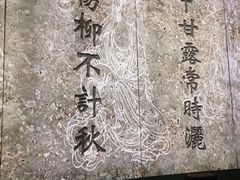 甘露常時灑
楊柳不計秋